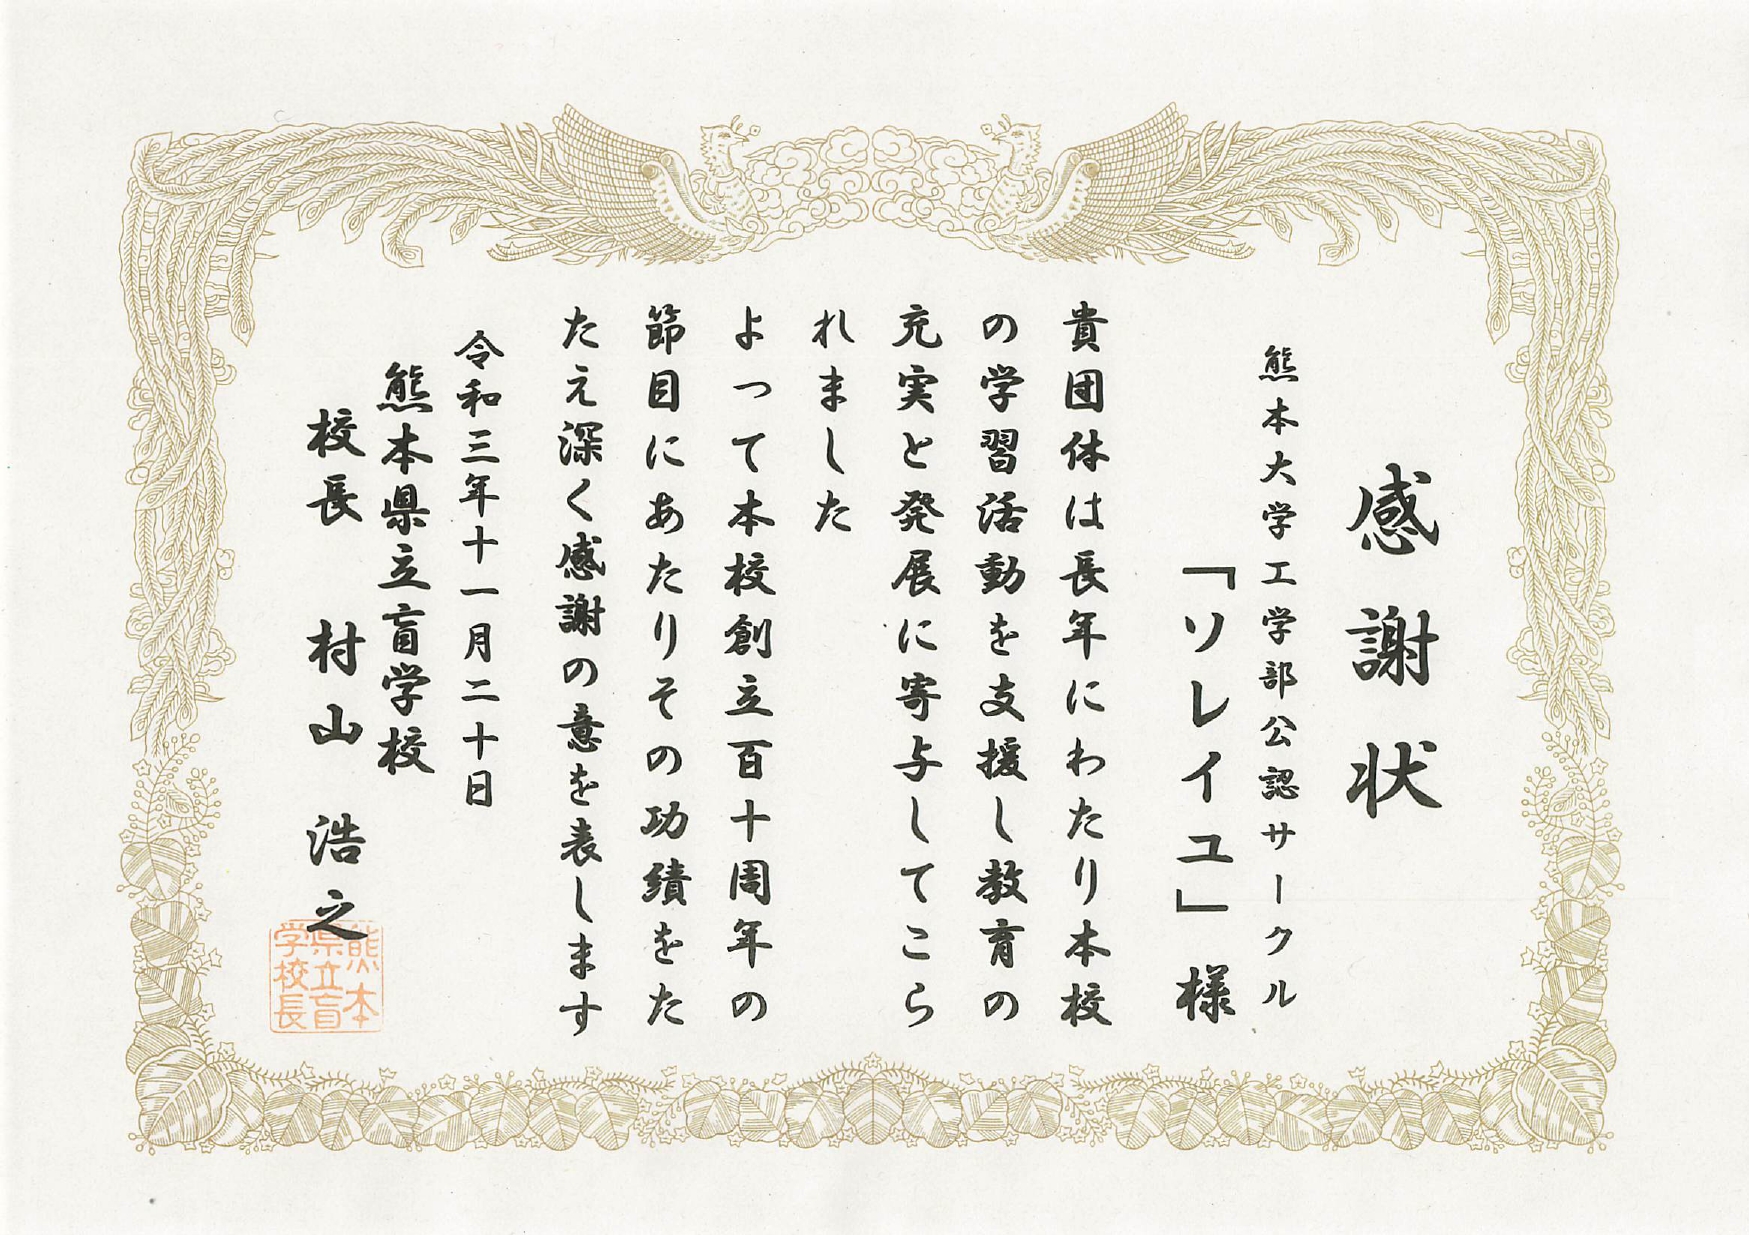 感謝状
熊本大学工学部公認サークル
「ソレイユ」様
貴団体は長年にわたり本校
の学習活動を支援し教育の
充実と発展に寄与してこら
れました
よって本校創立百十周年の
節目にあたりその功績をた
たえ深く感謝の意を表します
令和三年十一月二十日
熊本県立盲学校
校長 村山 浩之
熊本
県立盲
学校長